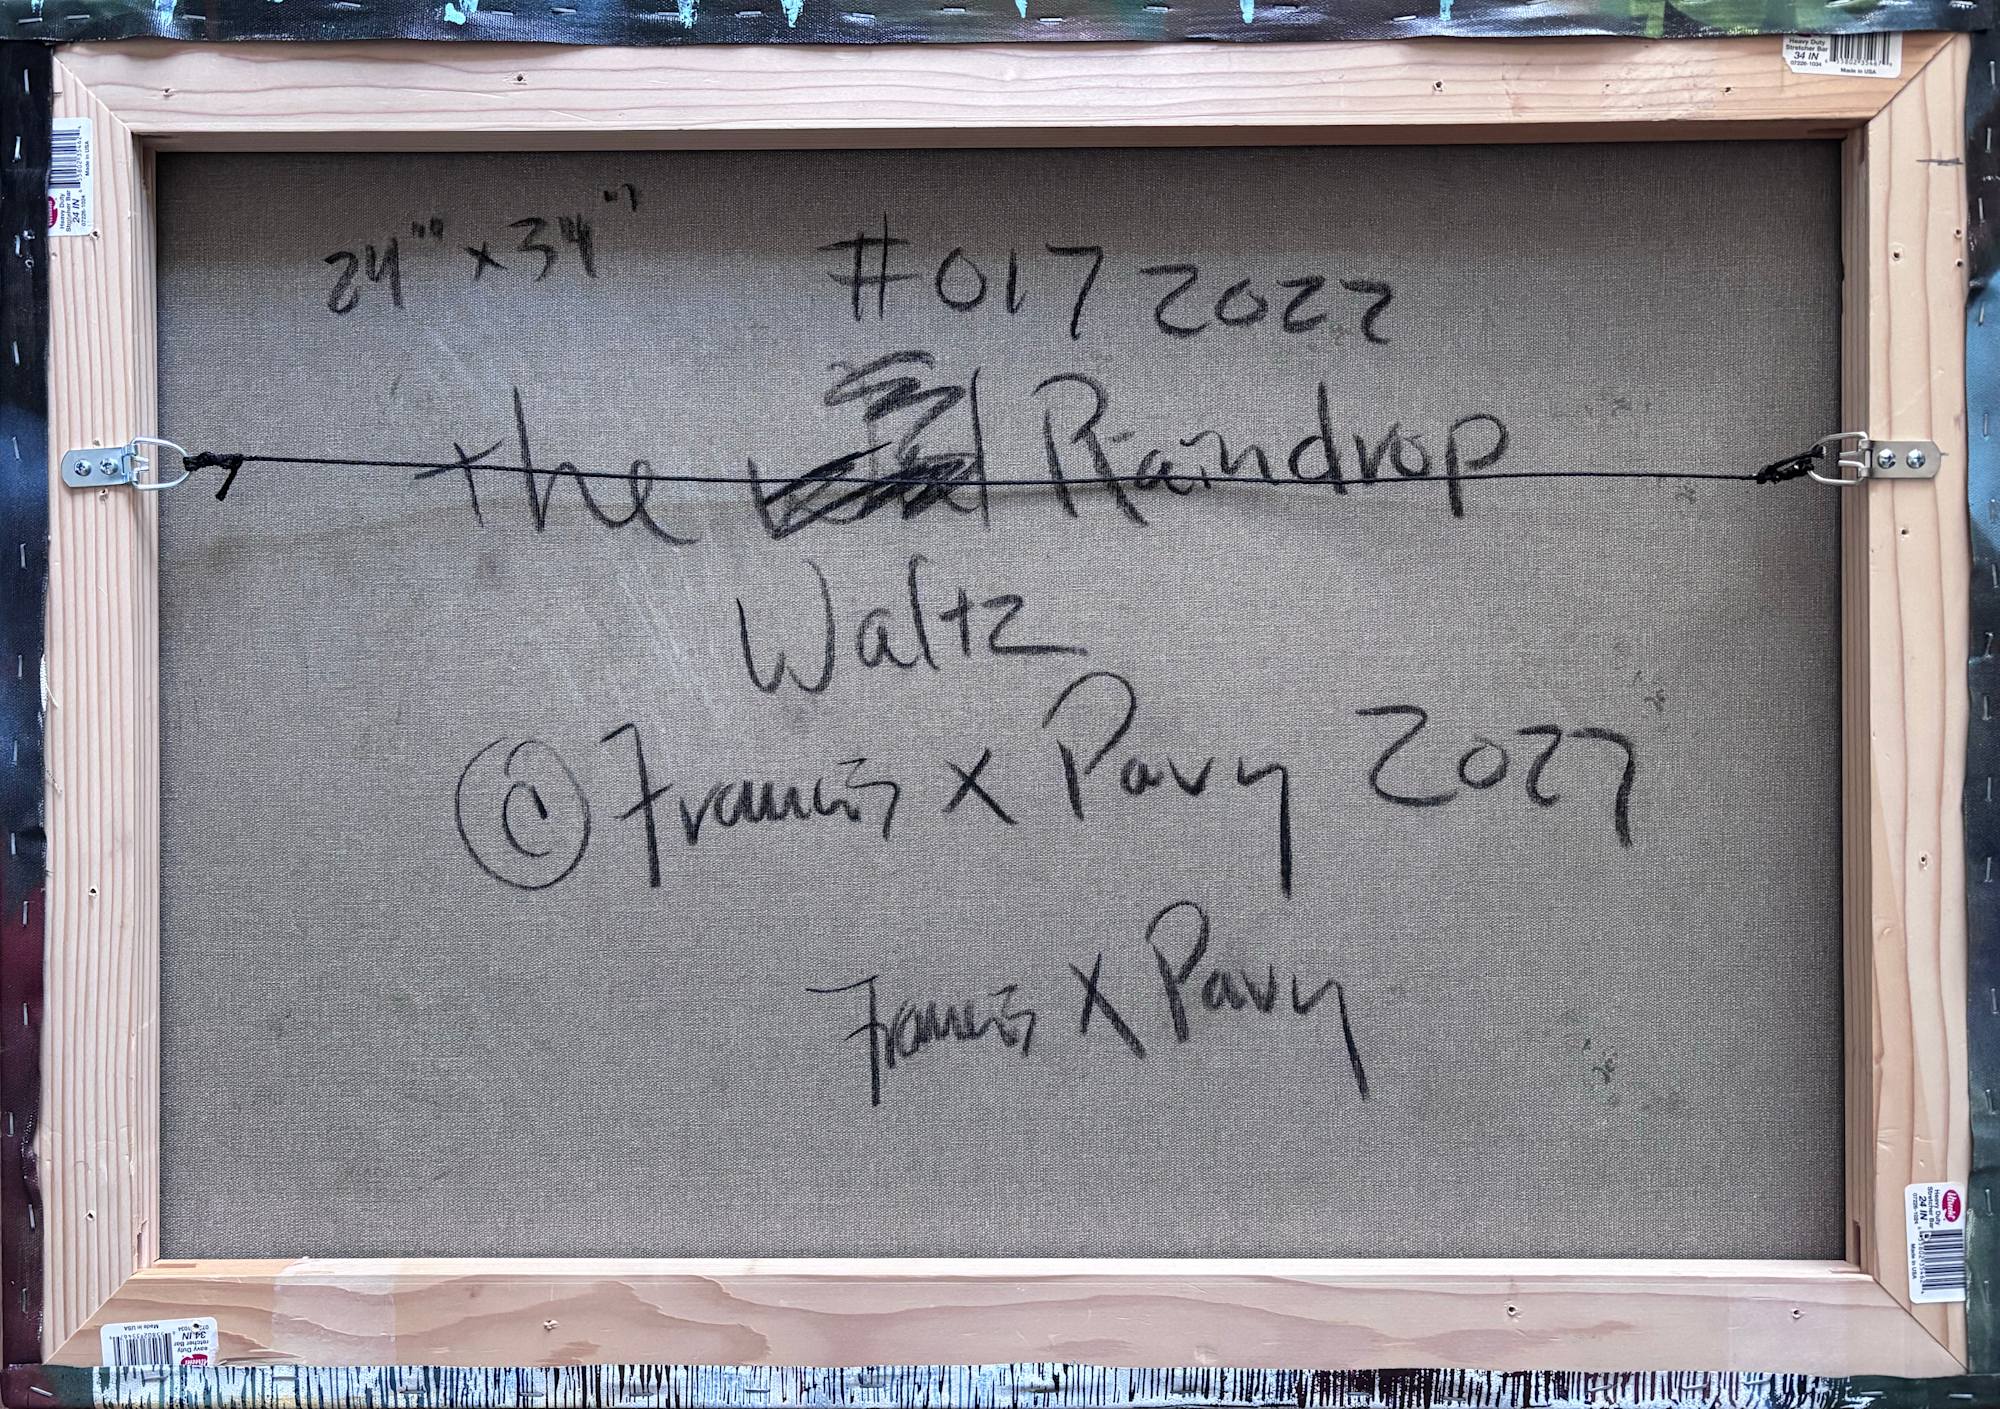 24" x 34"
#017 2022
The Raindrop
Waltz
© Francis X Pavy 2022
Francis X Pavy
Heavy Duty
Stretcher Bar
34 IN
07226-1034
Made in USA
Heavy Duty
Stretcher Bar
24 IN
Made in USA
Heavy Duty
Stretcher Bar
24 IN
Made in USA
34 IN
Made in USA